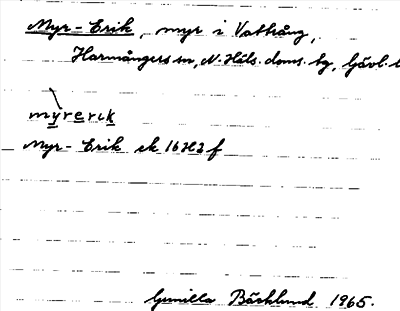 Myr-Erik, myr i Vattrång,
Harmångers sn, N. Häls. doms. bg, Gävl. l
myrerik
Myr-Erik ek 16H2f
Gunilla Bäcklund 1965.